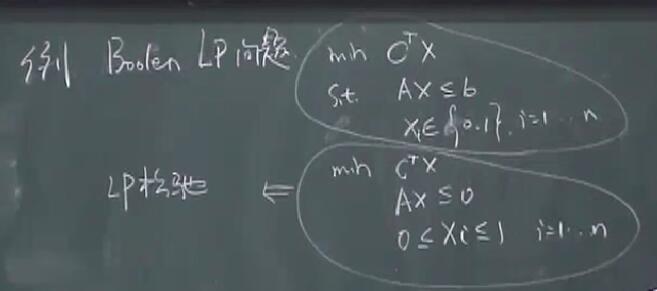 例 Boolen LP问题 min C^T X
s.t. AX ≤ b
X_i ∈ {0.1}, i=1 ... n
LP松弛 ⇐ min C^T X
AX ≤ 0
0 ≤ X_i ≤ 1 i=1 ... n